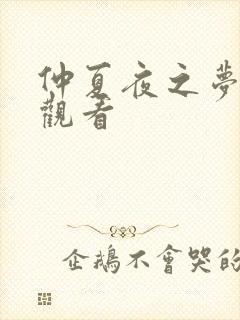 仲夏夜之夢
觀看
企鵝不會哭的